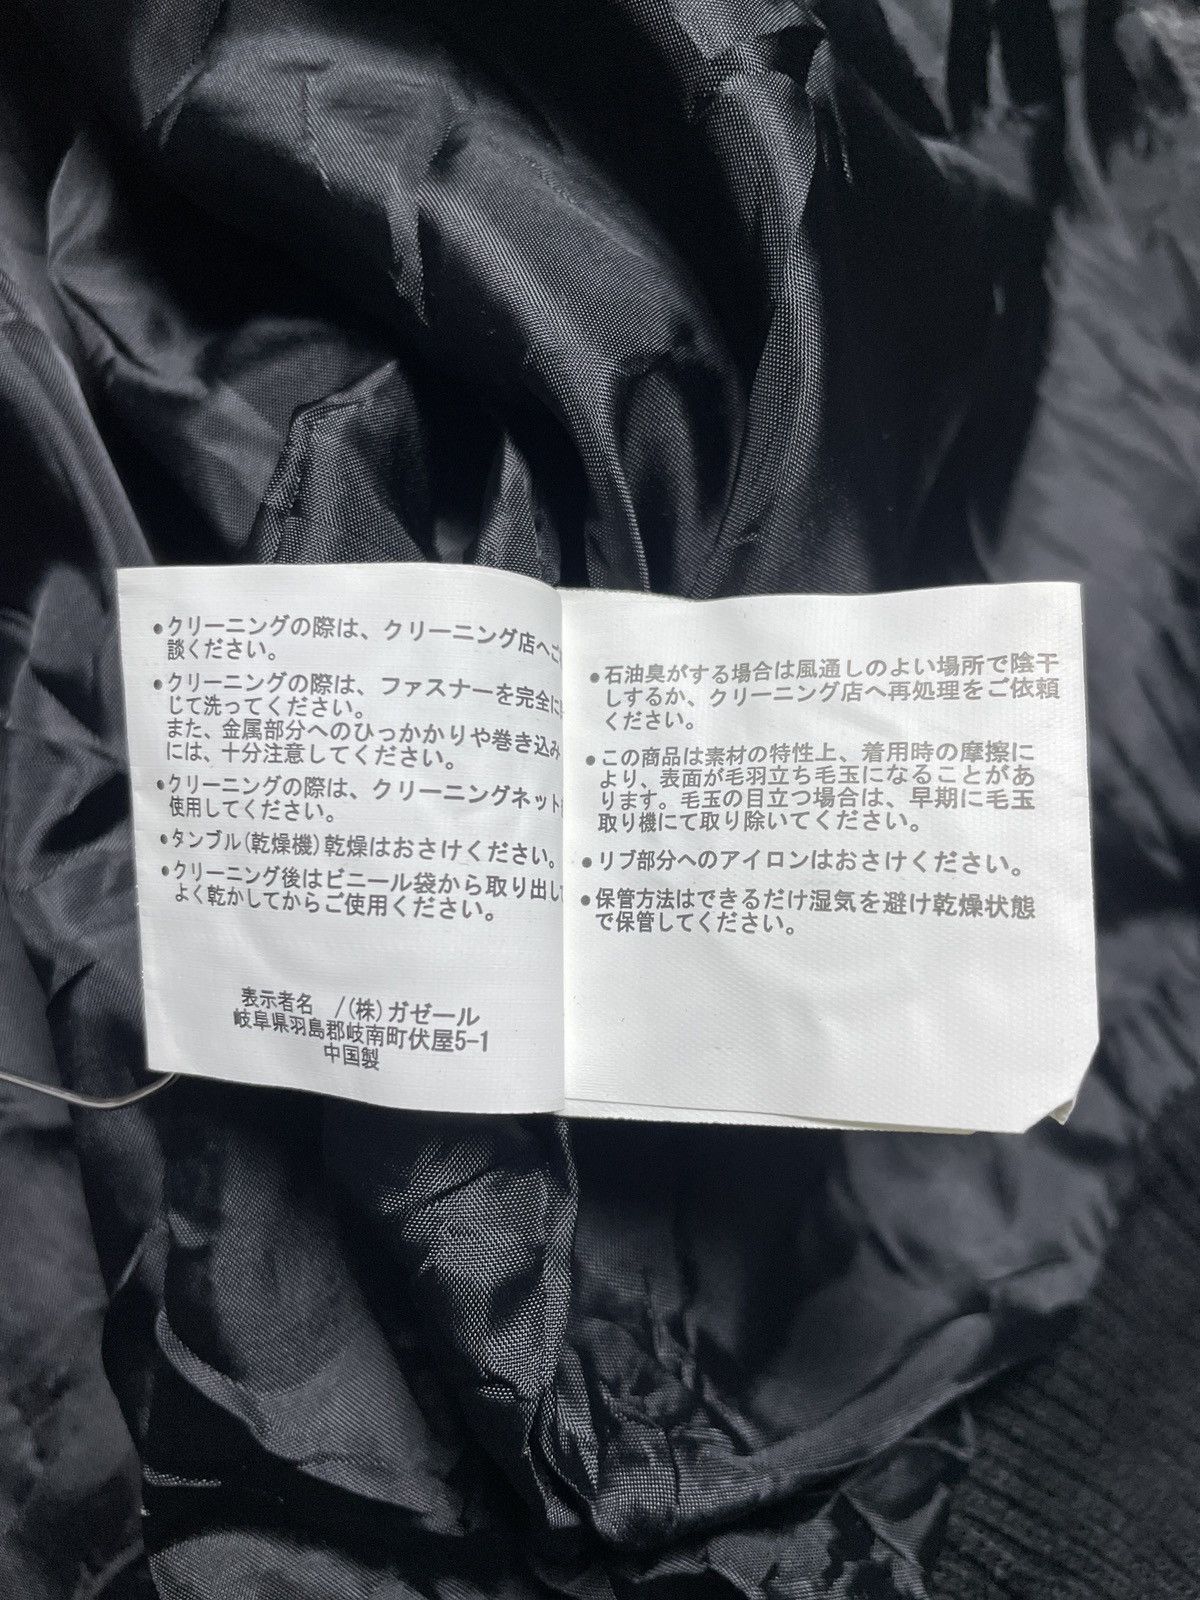 ●クリーニングの際は、クリーニング店へご
談ください。
●クリーニングの際は、ファスナーを完全に
じて洗ってください。
また、金属部分へのひっかかりや巻き込み
には、十分注意してください。
●クリーニングの際は、クリーニングネット
使用してください。
●タンブル(乾燥機)乾燥はおさけください。
●クリーニング後はビニール袋から取り出し
よく乾かしてからご使用ください。
表示者名 /(株)ガゼール
岐阜県羽島郡岐南町伏屋5-1
中国製
●石油臭がする場合は風通しのよい場所で陰干
しするか、クリーニング店へ再処理をご依頼
ください。
●この商品は素材の特性上、着用時の摩擦に
より、表面が毛羽立ち毛玉になることがあ
ります。毛玉の目立つ場合は、早期に毛玉
取り機にて取り除いてください。
●リブ部分へのアイロンはおさけください。
●保管方法はできるだけ湿気を避け乾燥状態
で保管してください。